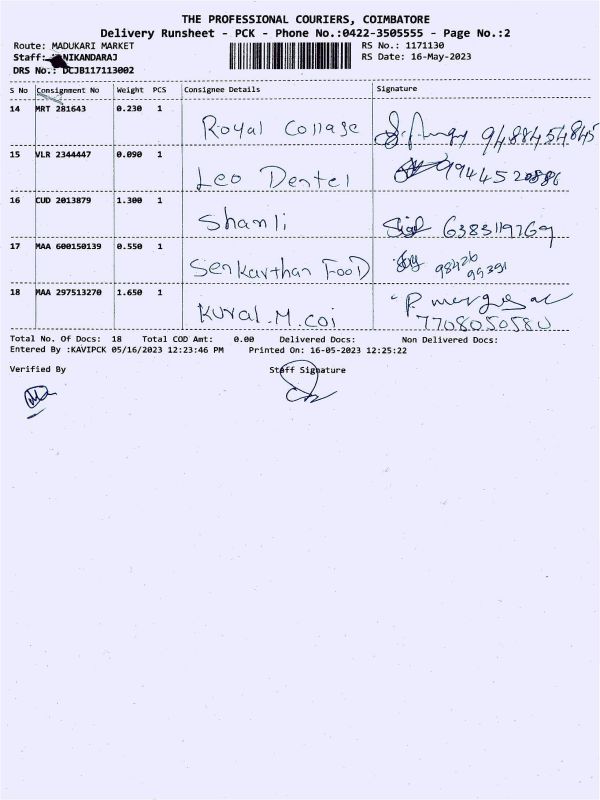 THE PROFESSIONAL COURIERS, COIMBATORE
Delivery Runsheet - PCK - Phone No.:0422-3505555 - Page No.:2
Route: MADUKARI MARKET RS No.: 1171130
Staff: NIKANDARAJ RS Date: 16-May-2023
DRS No.: DCJB117113002
S No Consignment No Weight PCS Consignee Details Signature
14 MRT 281643 0.230 1 Royal Collage 9488454845
15 VLR 2344447 0.090 1 Leo Dentel
16 CUD 2013879 1.300 1 Shamli 6383119769
17 MAA 600150139 0.550 1 Senkavthan FooD 98426
99391
18 MAA 297513270 1.650 1 Kural.M.coi
7708050580
Total No. Of Docs: 18 Total COD Amt: 0.00 Delivered Docs: Non Delivered Docs:
Entered By :KAVIPCK 05/16/2023 12:23:46 PM Printed On: 16-05-2023 12:25:22
Verified By Staff Signature